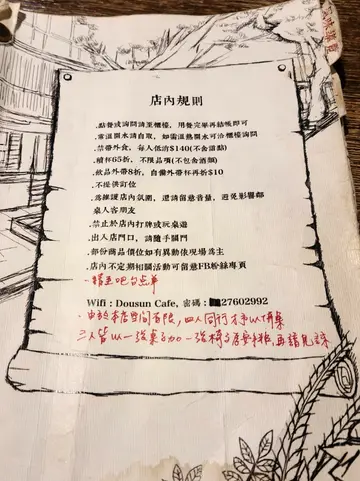 店內規則
.點餐或詢問請至櫃檯，用餐完畢再結帳即可
.常溫開水請自取，如需溫熱開水可洽櫃檯詢問
.禁帶外食，每人低消$140(不含甜點)
.續杯65折，不限品項(不包含酒類)
.飲品外帶8折，自備外帶杯再折$10
.不提供訂位
.為維護店內氛圍，還請留意音量，避免影響鄰
桌人客朋友
.禁止於店內打牌或玩桌遊
.出入店門口，請隨手關門
.部份商品價位如有異動依現場為主
.店內不定期相關活動可留意FB粉絲專頁
-請至吧台点单
Wifi：Dousun Cafe, 密碼：27602992
·由於本店空間有限，四人同行才予以併桌
三人皆以一張桌子加一張椅子為安排，再請見諒